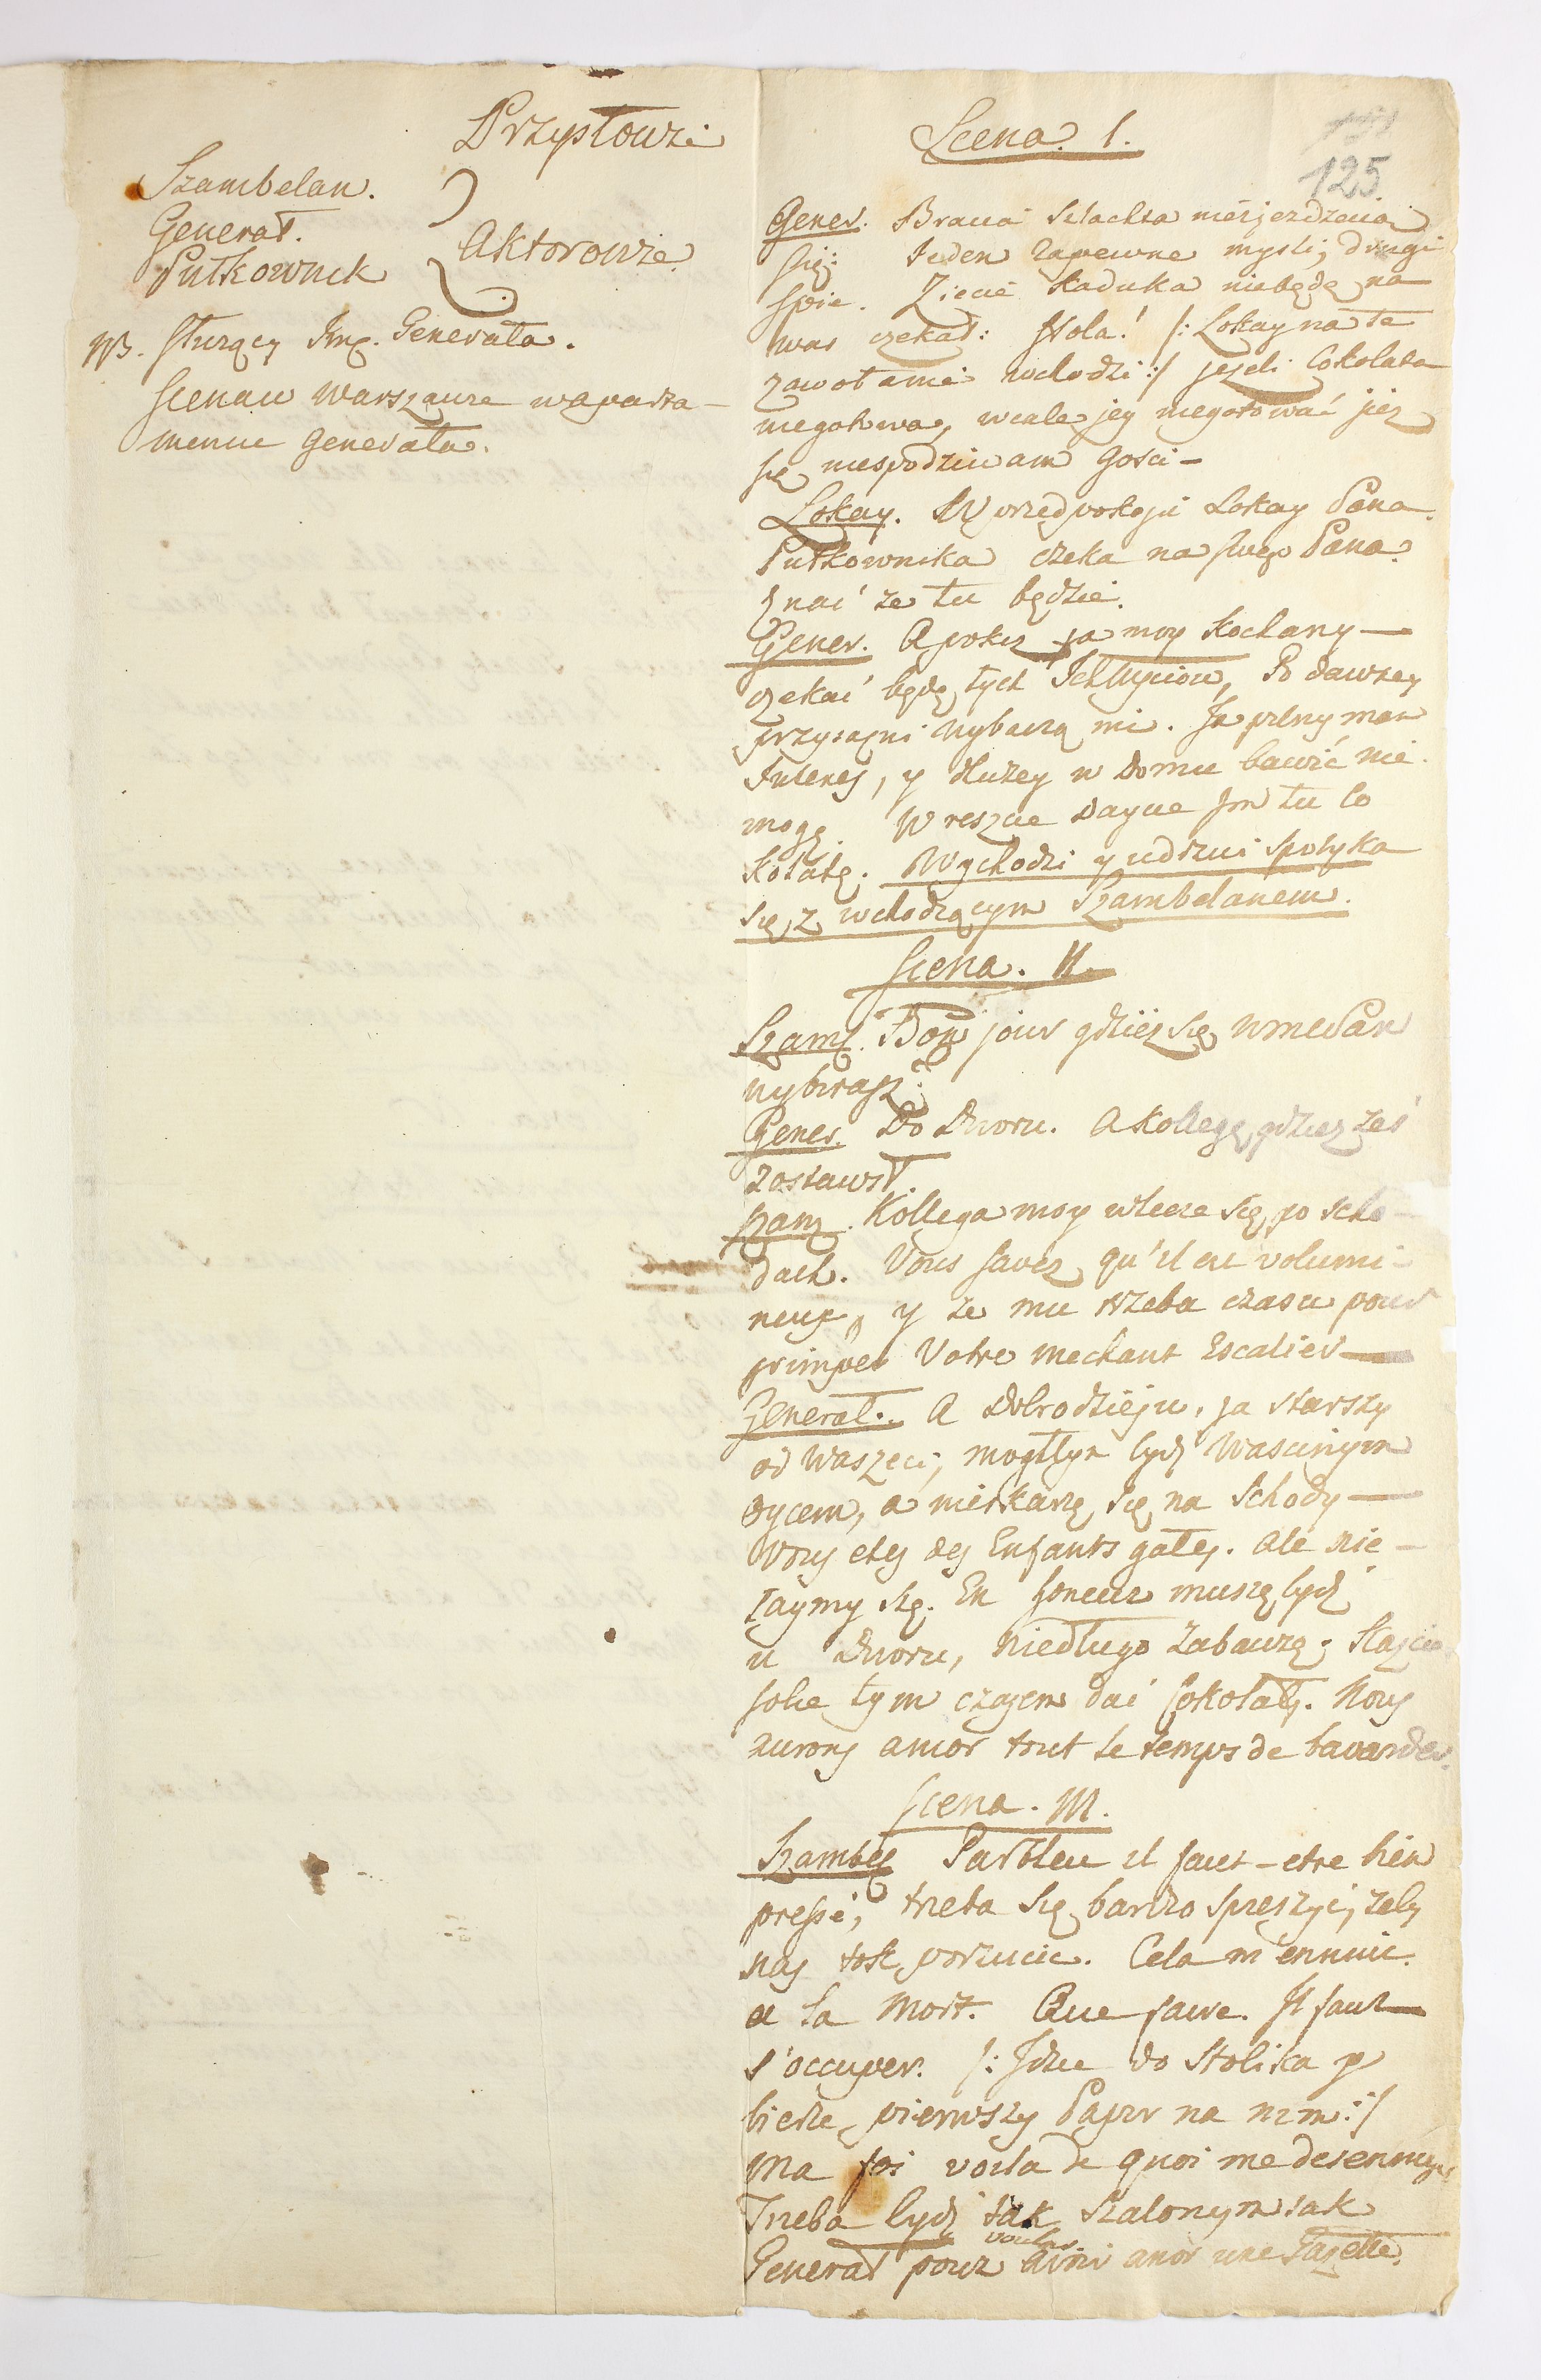 Przysłowie
Szambelan.
Generał.
Pułkownik
Aktorowie.
NB. Służący Jmp. Generała.
Scena w Warszawie w aparta-
mencie Generała.
125
Scena. I.
Gener. Bracia szlachta niezjezdzaią
się: Jeden zapewne mysli, drugi
spie. Ziecie kaduka niebędę na
was czekał: Hola! /: Lokay na te
zawołanie wchodzi :/ jezeli Cokolata
niegotowa, wcale jey niegotować juz
się niespodziewam Gosci -
Lokay. W przedpokoju Lokay Pana
Pułkownika czeka na swego Pana.
Znać ze tu będzie.
Gener. A pokiz ja moy kochany —
czekać będę tych Ichmyciow, Po dawney
przyiazni wybaczą mi. Ja pilny mam
Interes, y dłużey w Domu bawić nie
mogę. W reszcie daycie Jm tu Co
kolatę. Wychodzi y u drzwi spotyka
się z wchodzącym Szambelanem.
Scena. II.
Szamb. Bon jour gdzież się WmcPan
wybierasz?
Gener. Do Dworu. A Kollegę gdzież żeś
zostawił.
Szam. Kollega moy wlecze się po scho-
dach. Vous savez qu'il est volumi-
neux, y że mu trzeba czasu pour
grimper Votre mechant Escalier —
Generał. A Dobrodzieju, ja starszy
od Waszeci, mogłbym bydź Wascinym
oycem, a nieskarzę się na Schody —
Vous etes des Enfants gatés. Ale nie
łaymy się. En honeur muszę bydź
u Dworu, niedługo zabawię; Kazcie
sobie tym czasem dać Cokolatę. Nous
aurons encor tout le temps de bavarder.
Scena. III.
Szambel Parbleu il faut-etre bien
pressé, trzeba się bardzo spieszyć, zeby
nas tak porzucic. Cela m'ennuie
a la mort. Que faire. Il faut
s'occuper. /: Idzie do Stolika y
bierze pierwszy Papier na nim :/
Ma foi voila de quoi me desennuyer
Trzeba bydź tak szalonym jak
Generał pour vouloir avoir encor une Gazette.